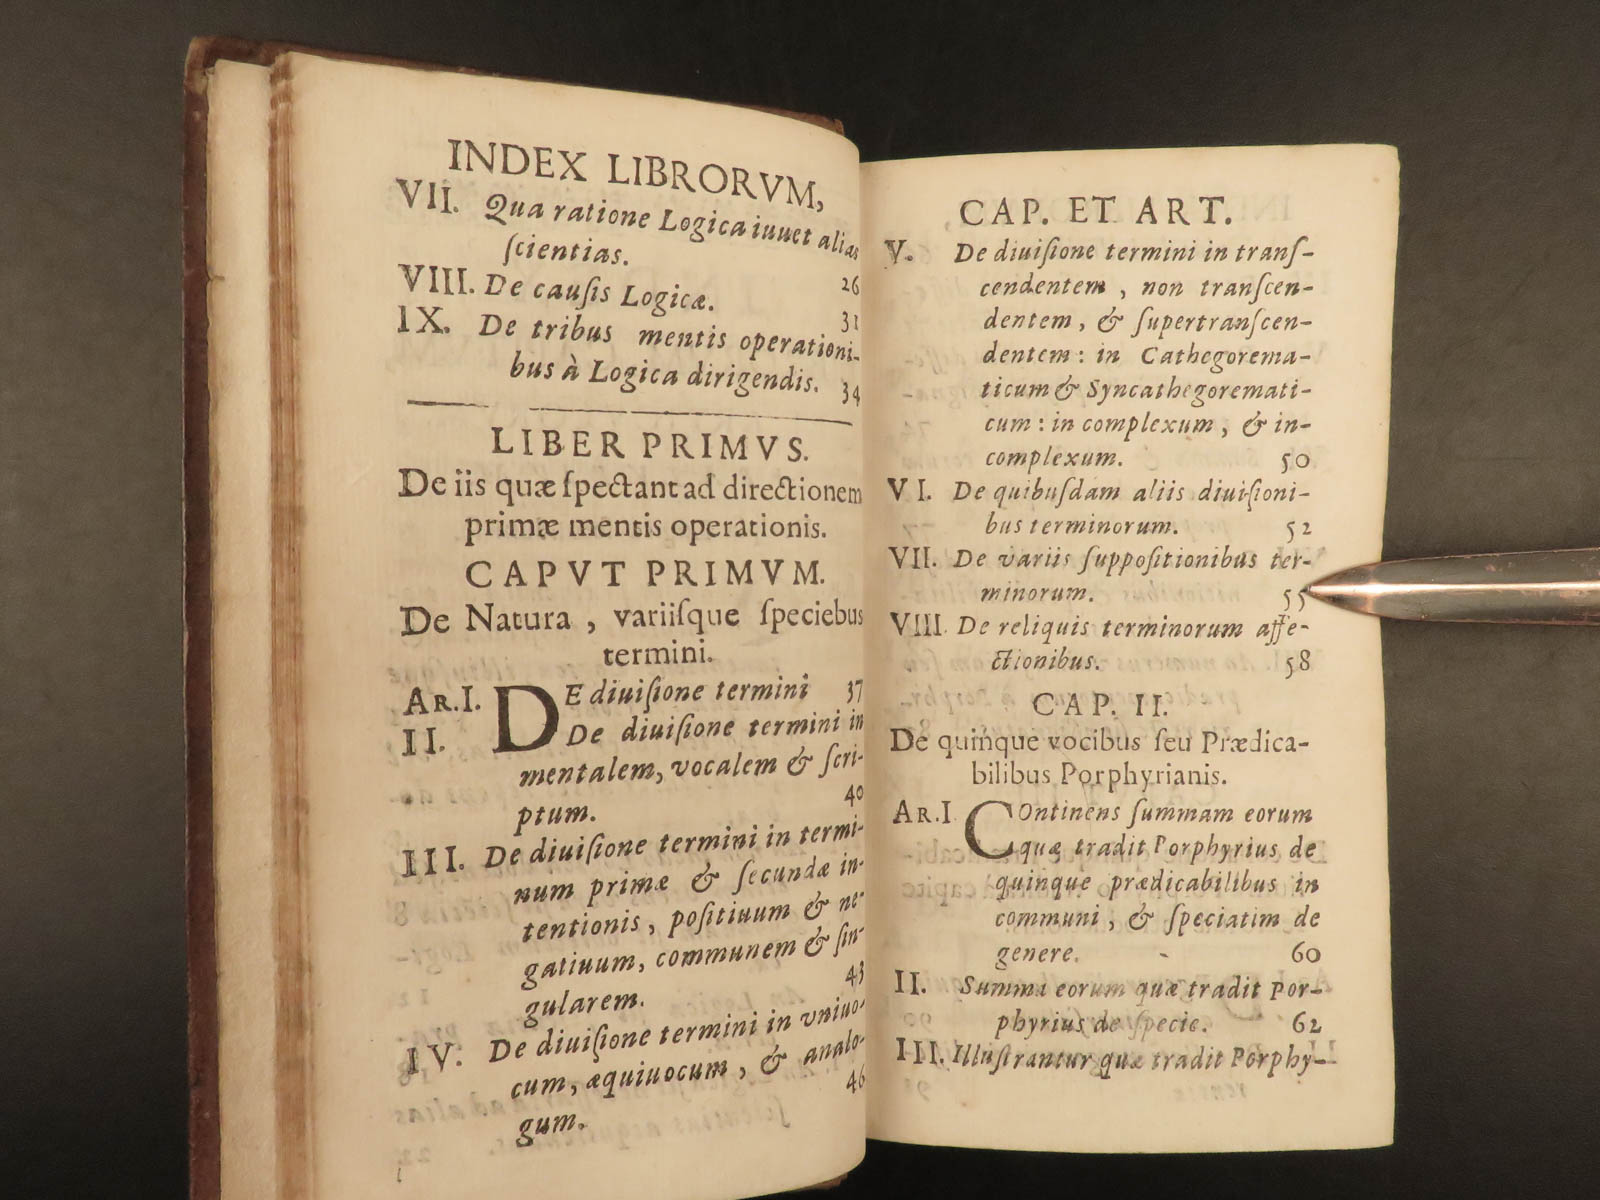 INDEX LIBRORVM,
VII. Qua ratione Logica iuuet alias
ſcientias. 26
VIII. De cauſis Logicæ. 31
IX. De tribus mentis operationi-
bus à Logica dirigendis. 34
LIBER PRIMVS.
De iis quæ ſpectant ad directionem
primæ mentis operationis.
CAPVT PRIMVM.
De Natura, variiſque ſpeciebus
termini.
AR. I. DE diuiſione termini 37
II. De diuiſione termini in
mentalem, vocalem & ſcri-
ptum. 40
III. De diuiſione termini in termi-
num primæ & ſecundæ in-
tentionis, poſitiuum & ne-
gatiuum, communem & ſin-
gularem. 43
IV. De diuiſione termini in vniuo-
cum, æquiuocum, & analo-
gum. 46
CAP. ET ART.
V. De diuiſione termini in tranſ-
cendentem, non tranſcen-
dentem, & ſupertranſcen-
dentem: in Cathegorema-
ticum & Syncathegoremati-
cum: in complexum, & in-
complexum. 50
VI. De quibuſdam aliis diuiſioni-
bus terminorum. 52
VII. De variis ſuppoſitionibus ter-
minorum. 55
VIII. De reliquis terminorum affe-
ctionibus. 58
CAP. II.
De quinque vocibus ſeu Prædica-
bilibus Porphyrianis.
AR. I COntinens ſummam eorum
quæ tradit Porphyrius de
quinque prædicabilibus in
communi, & ſpeciatim de
genere. 60
II. Summa eorum quæ tradit Por-
phyrius de ſpecie. 62
III. Illuſtrantur quæ tradit Porphy-